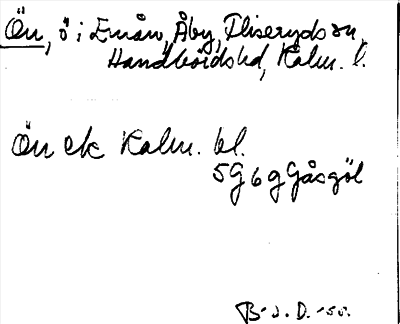 Ön, ö i Emån, Åby, Fliseryds sn,
Handbörds hd, Kalm. l.
Ön ek Kalm. bl.
5G6g Gåsgöl
B-d. D. -50.